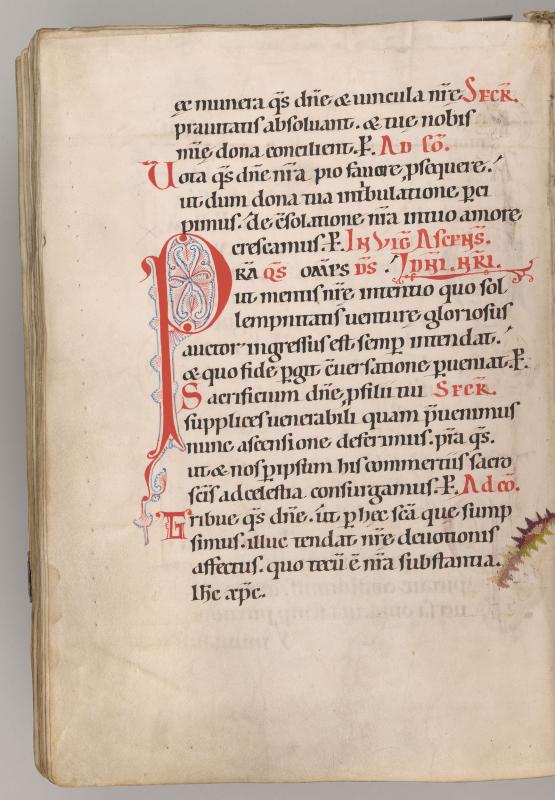 æ munera qs dñe & uincula nr̄e Secr̄.
prauitatis absoluant. & tue nobis
mīe dona concilient. P. Ad cō.
Uota qs dñe nr̄a pio fauore psequere.
ut dum dona tua in tribulatione perci
pimus. de c̄solatione nr̄a in tuo amore
crescamus. P. In Vig̃ Ascens̄.
PRǢ QS OMPS DS. D̄NI. NR̄I.
ut mentis nr̄e intentio quo sol
lempnitatis uenture gloriosus
auctor ingressus est semp intendat.
& quo fide pgit c̄uersatione pueniat. P.
Sacrificium dñe p filii tui Secr̄.
supplices uenerabili quam p̄uenimus
nunc ascensione deferimus. p̄ta qs.
ut & nos p ipsum his commertiis sacro
scīs ad celestia consurgamus. P. Ad cō.
Tribue qs dñe. ut p hec scā que sump
simus. illuc tendat nr̄e deuotionis
affectus. quo tecū ē nr̄a substantia.
ihc xpc.